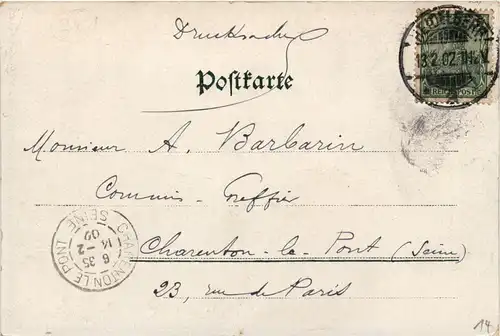 Drucksache
Postkarte
HEIDELBERG
13.2.02.11-12V.
REICHSPOST
Monsieur A. Barbarin
Commis-Greffier
Charenton-le-Pont (Seine)
23, rue de Paris
CHARENTON LE PONT
6 35
14 -2
02
SEINE
14